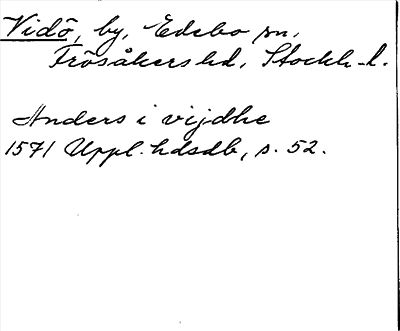 Vidö, by, Edebo sn,
Frösåkers hd, Stockh. l.
Anders i vijdhe
1571 Uppl. hdsdb, s. 52.